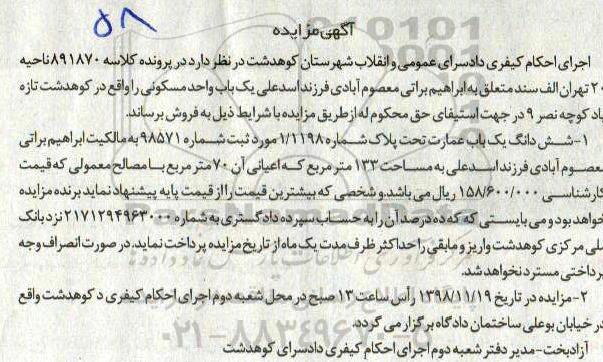 ۵۸
آگهی مزایده
اجرای احکام کیفری دادسرای عمومی و انقلاب شهرستان کوهدشت در نظر دارد در پرونده کلاسه ۸۹۱۸۷۰ ناحیه
۲۰ تهران الف سند متعلق به ابراهیم براتی معصوم آبادی فرزند اسدعلی یک باب واحد مسکونی را واقع در کوهدشت تازه
باد کوچه نصر ۹ در جهت استیفای حق محکوم له از طریق مزایده با شرایط ذیل به فروش برساند.
۱- شش دانگ یک باب عمارت تحت پلاک شماره ۱/۱۱۹۸ مورد ثبت شماره ۹۸۵۷۱ به مالکیت ابراهیم براتی
معصوم آبادی فرزند اسدعلی به مساحت ۱۳۳ متر مربع که اعیانی آن ۷۰ متر مربع با مصالح معمولی که قیمت
کارشناسی ۱۵۸/۶۰۰/۰۰۰ ریال می باشد. و شخصی که بیشترین قیمت را از قیمت پایه پیشنهاد نماید برنده مزایده
خواهد بود و می بایستی که که ده درصد آن را به حساب سپرده دادگستری به شماره ۲۱۷۱۲۹۴۹۶۳۰۰۰ نزد بانک
ملی مرکزی کوهدشت واریز و مابقی را حداکثر ظرف مدت یک ماه از تاریخ مزایده پرداخت نماید. در صورت انصراف وجه
پرداختی مسترد نخواهد شد.
۲- مزایده در تاریخ ۱۳۹۸/۱۱/۱۹ رأس ساعت ۱۳ صبح در محل شعبه دوم اجرای احکام کیفری د کوهدشت واقع
در خیابان بوعلی ساختمان دادگاه برگزار می گردد.
آزادبخت- مدیر دفتر شعبه دوم اجرای احکام کیفری دادسرای کوهدشت
۰۲۱-۸۸۳۴۹۶